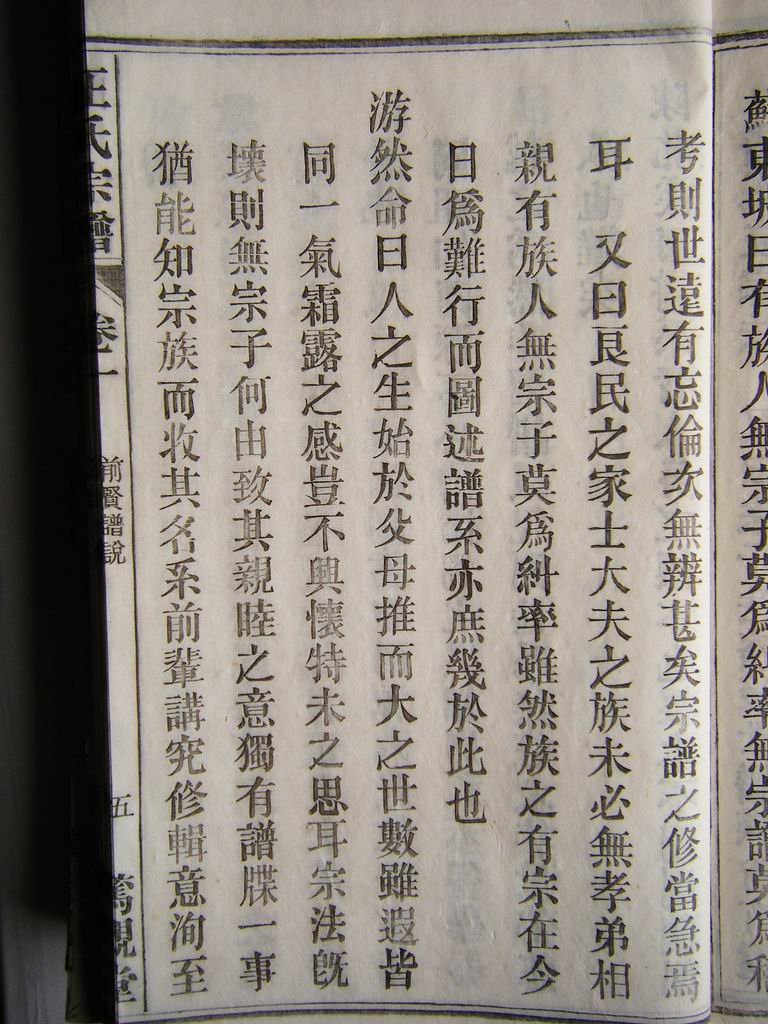 蘇東坡曰有族人無宗子莫爲糾率無宗譜莫爲稽
考則世遠有忘倫次無辨甚矣宗譜之修當急焉
耳　又曰良民之家士大夫之族未必無孝弟相
親有族人無宗子莫爲糾率雖然族之有宗在今
日爲難行而圖述譜系亦庶幾於此也
游然命曰人之生始於父母推而大之世數雖遐皆
同一氣霜露之感豈不興懷特未之思耳宗法旣
壞則無宗子何由致其親睦之意獨有譜牒一事
猶能知宗族而收其名系前輩講究修輯意洵至
王氏宗譜
卷一
前賢譜說
五
篤親堂